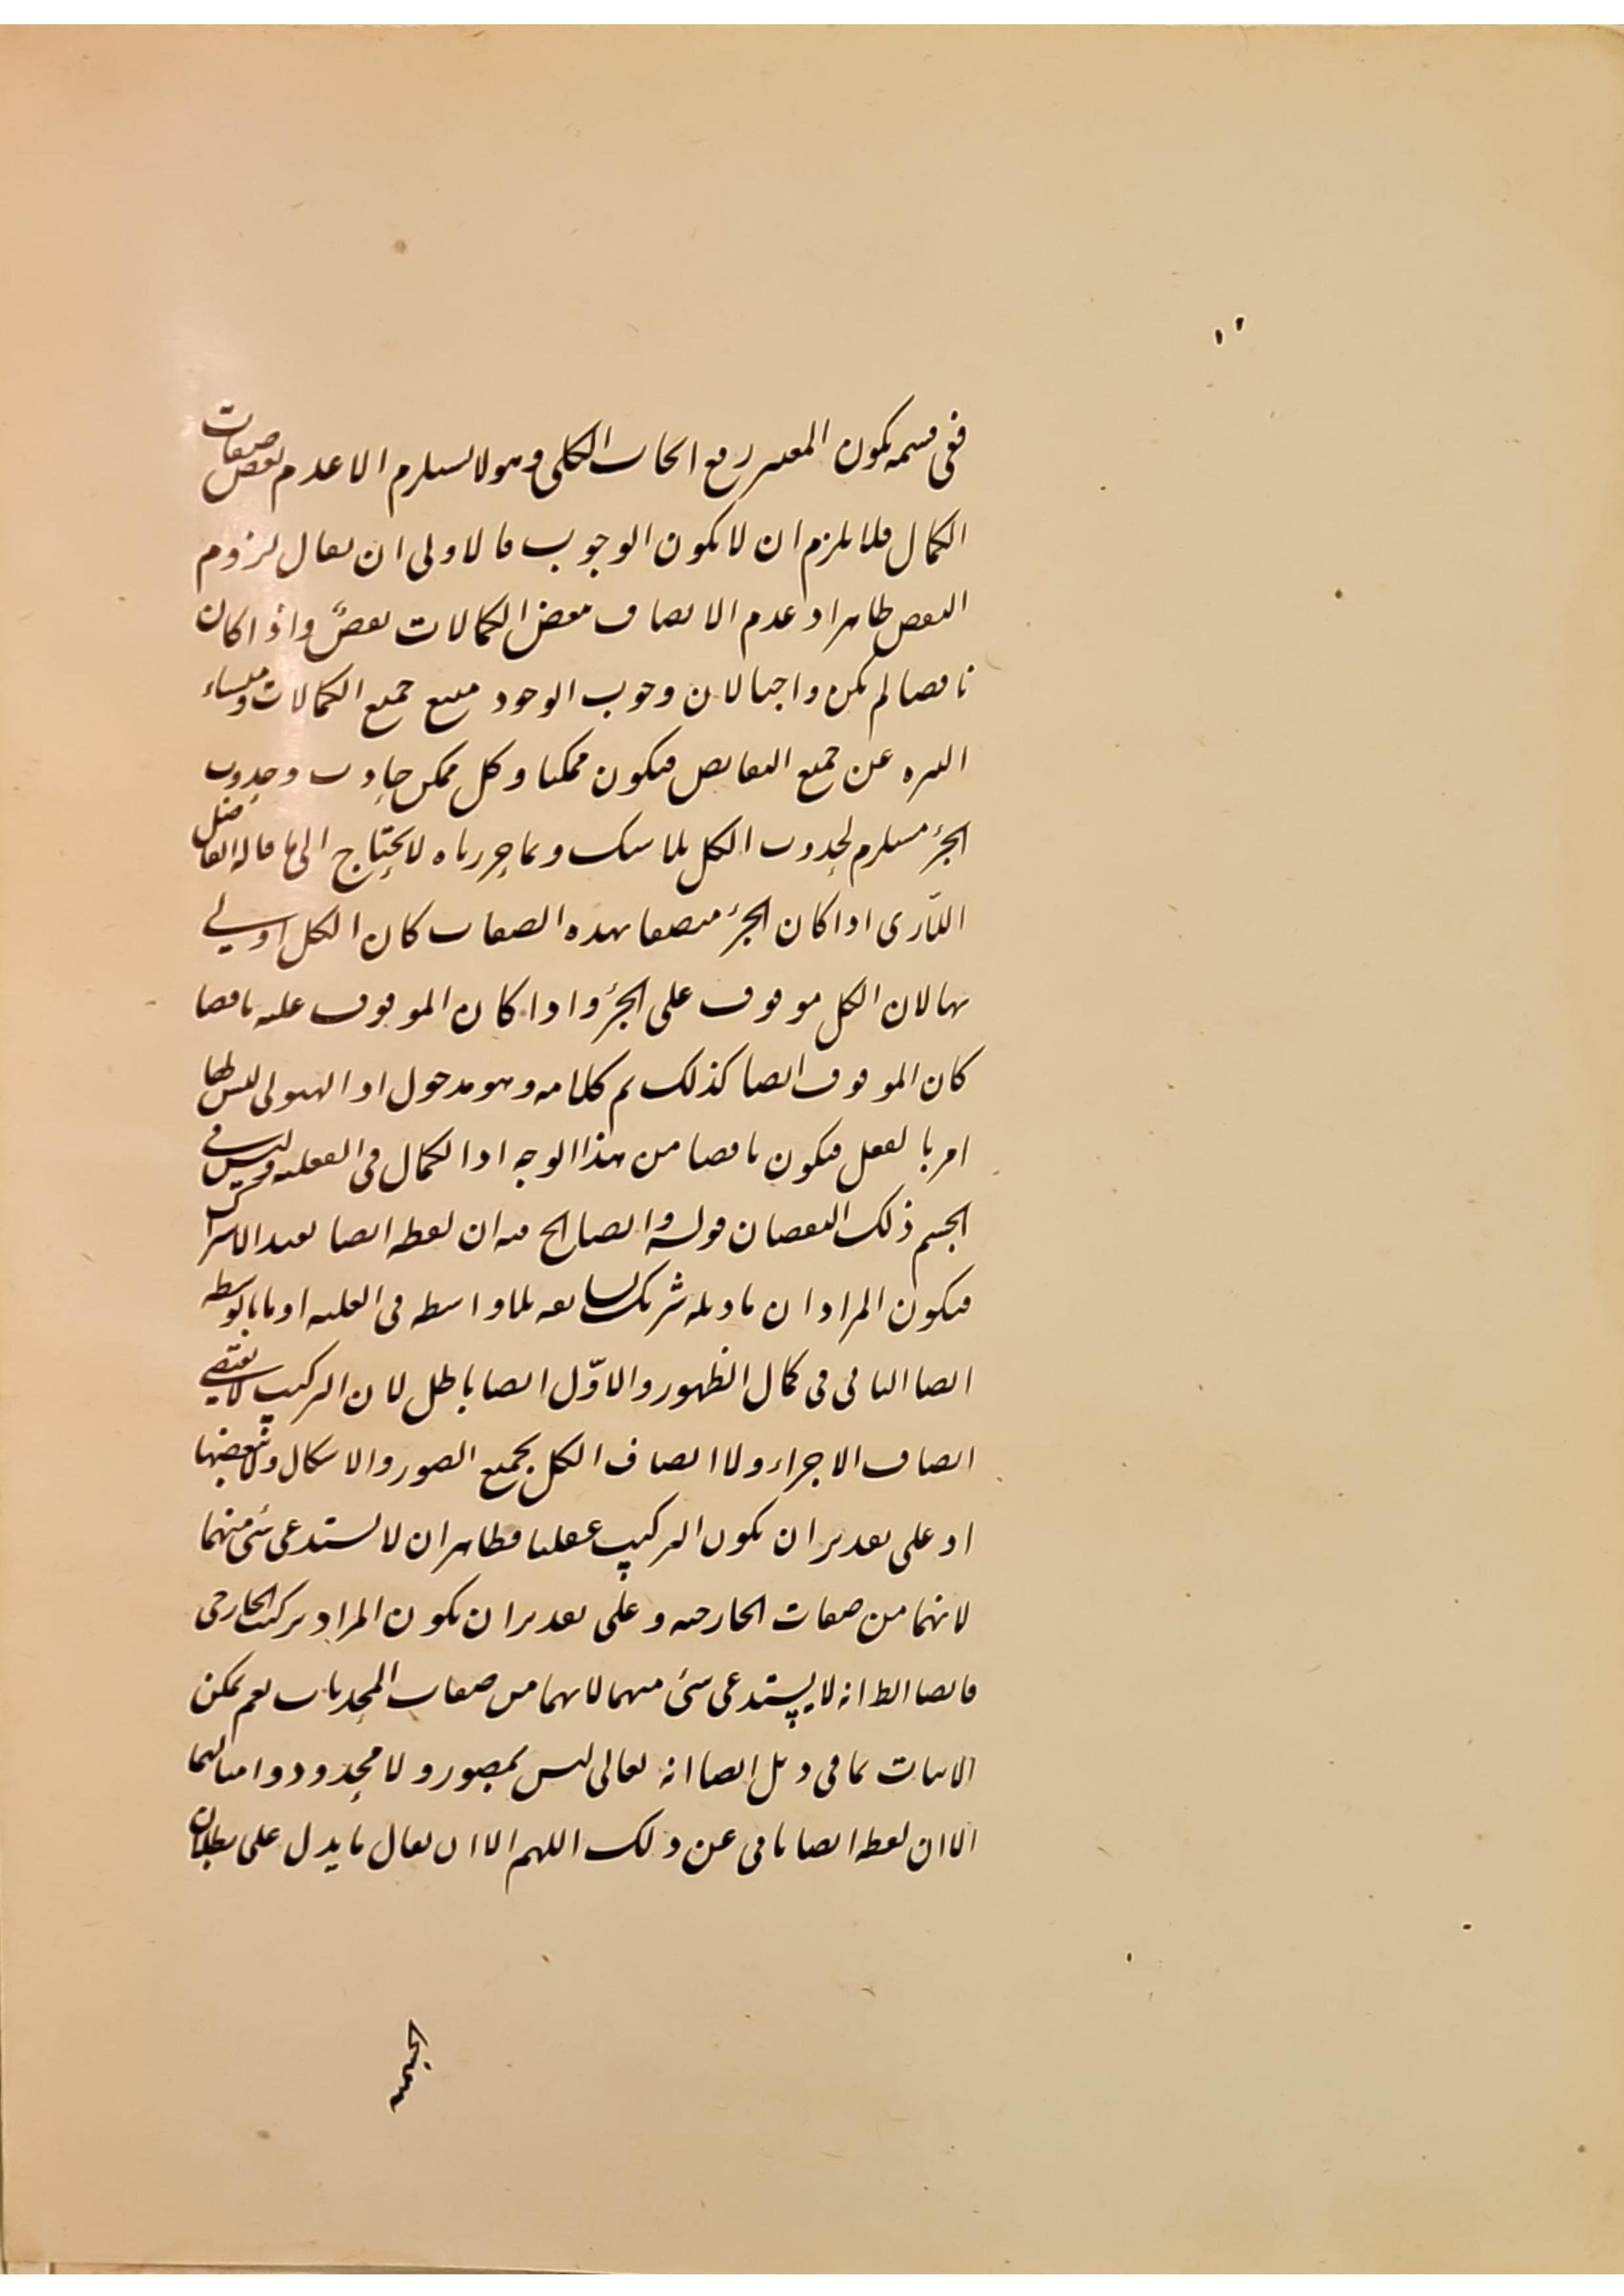 ففى قسمه يكون المعتبر رفع الايجاب الكلى وهو لا يستلزم الا عدم بعض صفات
الكمال فلا يلزم ان لا يكون الوجوب فالاولى ان يقال لزوم
النقص ظاهر اذ عدم الاتصاف ببعض الكمالات نقصٌ واذا كان
ناقصا لم يكن واجبا لان وجوب الوجود منبع جميع الكمالات ومنشاء
التنزه عن جميع النقايص فيكون ممكنا وكل ممكن حادث وحدوث
الجزء مستلزم لحدوث الكل بلا شك وبما حررناه لا يحتاج الى ما قاله الفاضل
اللّارى اذا كان الجزء متصفا بهذه الصفات كان الكل اولى
بها لان الكل موقوف على الجزء واذا كان الموقوف عليه ناقصا
كان الموقوف ايضا كذلك تم كلامه وهو مدخول اذ الهيولى ليس لها
امر بالفعل فيكون ناقصا من هذا الوجه اذ الكمال فى الفعلية وليس فى
الجسم ذلك النقصان قوله وايضا الخ فيه ان لفظة ايضا تفيد الاشتراك
فيكون المراد ان ما دليله شريك لسابقه بلا واسطة فى العلية او ما بالواسطة
ايضا الثانى فى كمال الظهور والاوّل ايضا باطل لان التركيب لا يقتضى
اتصاف الاجزاء ولا اتصاف الكل بجميع الصور والاشكال ولا ببعضها
اذ على تقدير ان يكون التركيب عقليا فظاهر ان لا يستدعى شئ منهما
لانهما من صفات الخارجية وعلى تقدير ان يكون المراد تركيب الخارجى
فايضا الظ انه لا يستدعى شئ منهما لانهما من صفات نعم يمكن
الاثبات بما فى ذيل ايضا انه تعالى ليس بمصور ولا محدود وامثالهما
الا ان لفظة ايضا تأبى عن ذلك اللهم الا ان يقال ما يدل على بطلان
الجسمية